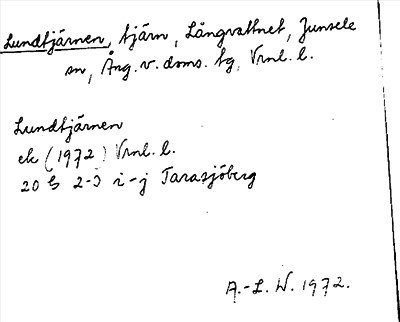 Lundtjärnen, tjärn, Långvattnet, Junsele
sn, Ång. v. doms. tg, Vrnl. l.
Lundtjärnen
ek (1972) Vrnl. l.
20 G 2-3 i-j Tarasjöberg
A.-L. W. 1972.